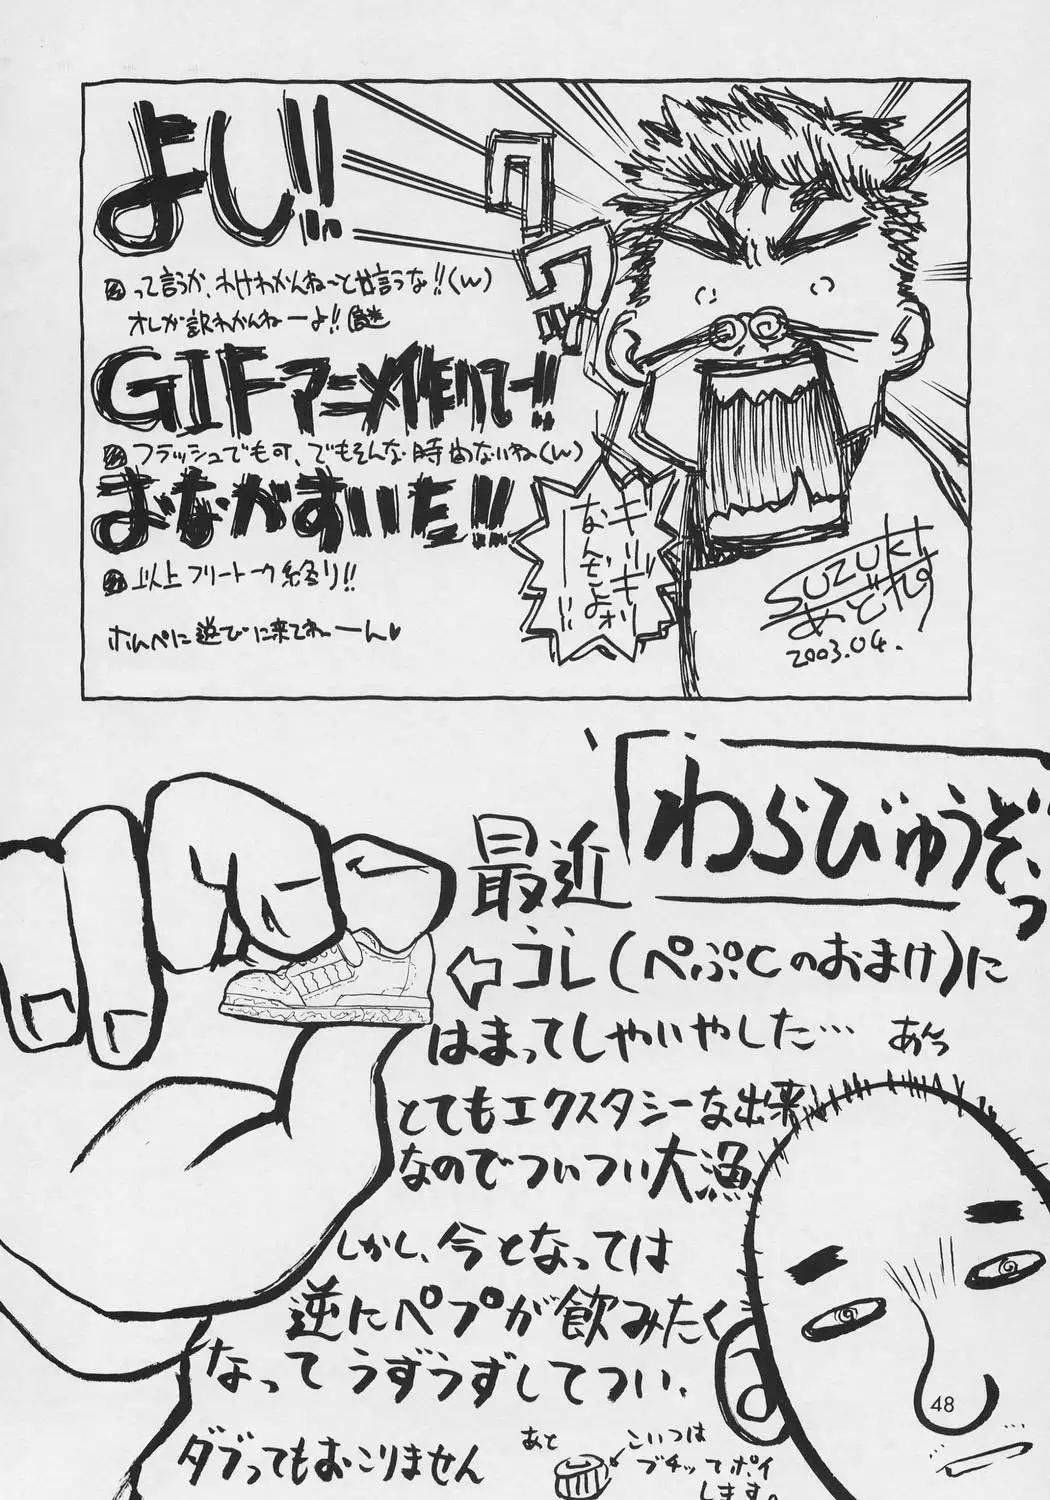 よし!!
って言うか、わけわかんねーとか言うな!!(w)
オレが訳わかんねーよ!!謎
GIFアニメ作りてー!!
フラッシュでも可、でもそんな時間ないね(w)
おなかすいた!!
以上フリートーク終り!!
ホムペに遊びに来てねーーん♥
ワワ
ギリギリ
なんだよォ
ーー!!
SUZUKI
あどれす
2003.04.
「わらびゅうぞっ
最近
コレ(ぺぷCのおまけ)に
はまってしゃいやした…
あんっ
とてもエクスタシーな出来
なのでついつい大漁
しかし、今となっては
逆にペプが飲みたく
なってうずうずしてつい、
ダブってもおこりません
あと
こいつは
ブチッてポイ
します。
48